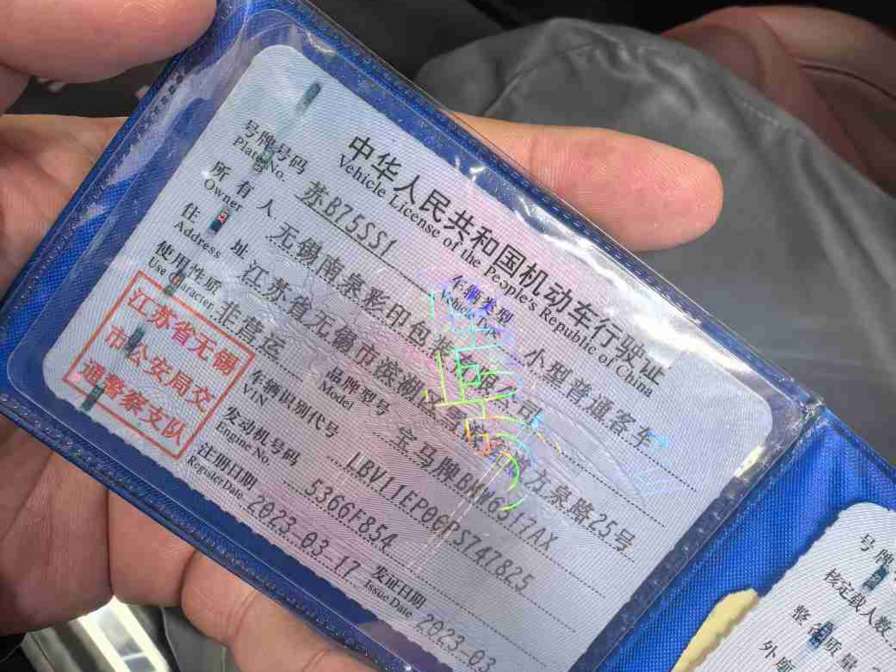 中华人民共和国机动车行驶证
Vehicle License of the People's Republic of China
号牌号码 苏B75SS1 车辆类型 小型普通客车
Plate No. Vehicle Type
所有人 无锡南泉彩印包装有限公司
Owner
住址 江苏省无锡市滨湖区 方泉路25号
Address
使用性质 非营运 品牌型号 宝马牌BMW6517AX
Use Character Model
车辆识别代号 LBV11EP00PS747825
VIN
发动机号码 5366F854
Engine No.
注册日期 2023-03-17 发证日期 2023-03
Register Date Issue Date
江苏省无锡
市公安局交
通警察支队
号牌
核定载人数
整备质量
外廓